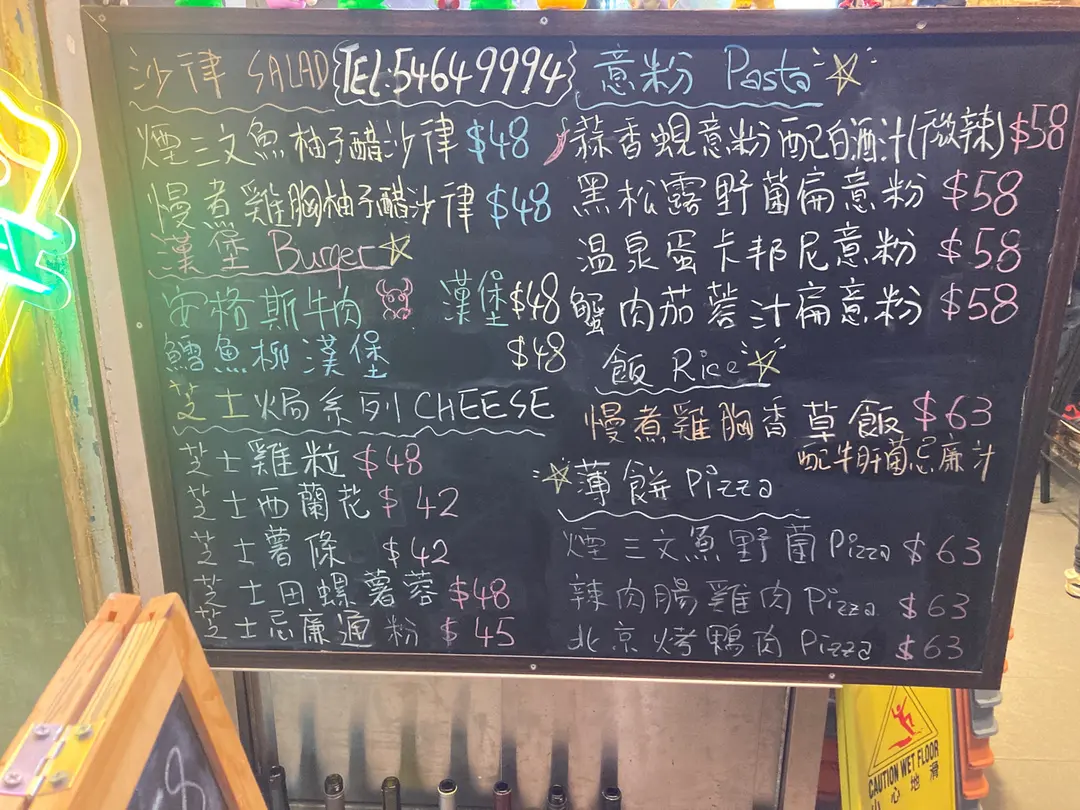 沙律 SALAD
TEL.54649994
煙三文魚柚子醋沙律 $48
慢煮雞胸柚子醋沙律 $48
漢堡 Burger
安格斯牛肉 漢堡 $48
鱈魚柳漢堡 $48
芝士焗系列 CHEESE
芝士雞粒 $48
芝士西蘭花 $42
芝士薯條 $42
芝士田螺薯蓉 $48
芝士忌廉通粉 $45
意粉 Pasta
蒜香蜆意粉配白酒汁(微辣) $58
黑松露野菌扁意粉 $58
溫泉蛋卡邦尼意粉 $58
蟹肉茄蓉汁扁意粉 $58
飯 Rice
慢煮雞胸香草飯 $63
配牛肝菌忌廉汁
薄餅 Pizza
煙三文魚野菌 Pizza $63
辣肉腸雞肉 Pizza $63
北京烤鴨肉 Pizza $63
CAUTION WET FLOOR
小心地滑